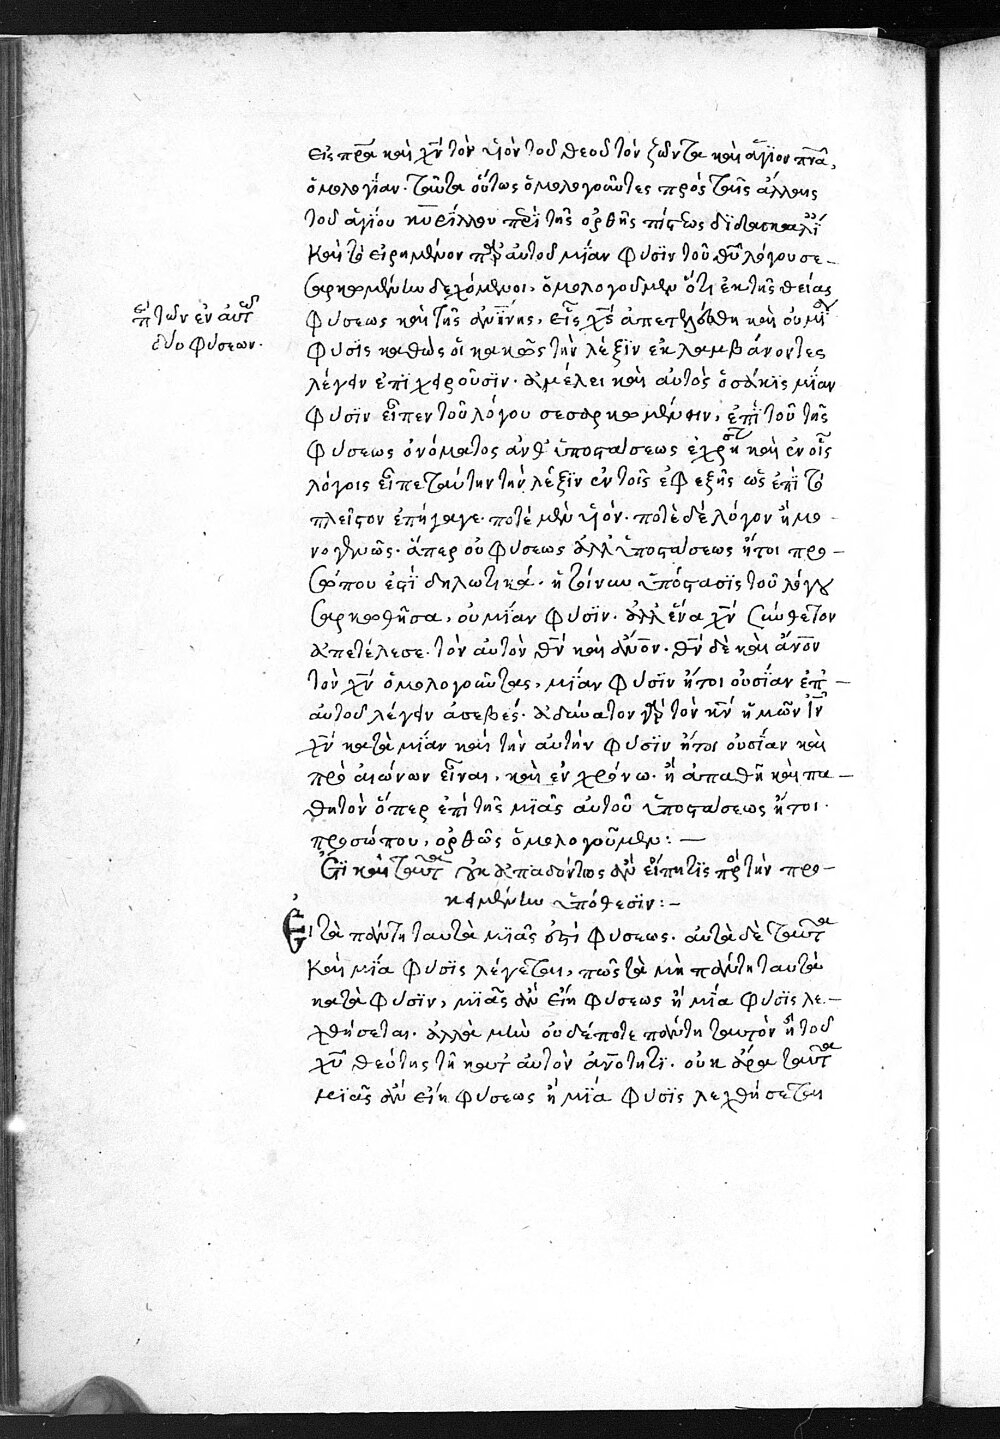 εἰς πρ̅α καὶ χ̅ν τὸν υἱὸν τοῦ θεοῦ τὸν ζῶντα καὶ ἅγϊον πν̅α,
ὁμολογΐαν· ταῦτα οὕτως ὁμολογοῦντες πρὸς ταῖς ἄλλαις
τοῦ ἁγίου κυρίλλου περὶ τῆς ὀρθῆς πίστεως δϊδασκαλί
Καὶ τὸ εἰρημένον παρ αὐτοῦ μΐαν φύσϊν τοῦ θ̅υ λόγου σε
σαρκωμένην δεχόμενοι, ὁμολογοῦμεν ὅτι ἐκ τῆς θείας
φύσεως καὶ τῆς ἀν̅ΐνης, εἷς χ̅ς ἀπετελέσθη καὶ οὐ μΐα
φύσϊς καθὼς οἱ κακῶς τὴν λέξϊν ἐκλαμβάνοντες
λέγειν ἐπϊχειροῦσϊν· ἀμέλει καὶ αὐτὸς ὁσάκϊς μΐαν
φύσϊν εἶπεν τοῦ λόγου σεσαρκωμένην, ἐπὶ τοῦ τῆς
φύσεως ὀνόματος ἀνθ ὑποστάσεως ἐχρήσατο καὶ ἐν οἷς
λόγοις εἶπε ταύτην τὴν λέξϊν ἐν τοῖς ἐφεξῆς ὡς ἐπὶ τὸ
πλεῖστον ἐπήγαγε· ποτὲ μὲν υἱὸν· ποτὲ δὲ λόγον ἢ μο-
νογενῶς· ἅπερ οὐ φύσεως ἀλλ ὑποστάσεως ἤτοι προ-
σώπου ἐστϊ δηλωτικά· ἡ τοίνυν ὑπόστασϊς τοῦ λόγου
σαρκωθεῖσα, οὐ μΐαν φύσϊν· ἀλλ ἕνα χ̅ν σύνθετον
ἀπετέλεσε· τὸν αὐτὸν θ̅ν καὶ ἄν̅ον· θ̅ν δὲ καὶ ἄν̅ον
τὸν χ̅ν ὁμολογοῦντας, μΐαν φύσϊν ἤτοι οὐσΐαν ἐπ -
αὐτοῦ λέγειν ἀσεβές· ἀδύνατον γὰρ τὸν κ̅ν ἡμῶν ι̅ν
χ̅ν κατὰ μΐαν καὶ τὴν αὐτὴν φύσϊν ἤτοι οὐσΐαν καὶ
πρὸ αἰώνων εἶναι, καὶ ἐν χρόνω· ἢ ἀπαθῆ καὶ πα-
θητὸν ὅπερ ἐπὶ τῆς μϊᾶς αὐτοῦ ὑποστάσεως ἤτοι·
προσώπου, ὀρθῶς ὁμολογοῦμεν: —
Ἔτϊ καὶ ταῦτα οὐκ ἀπαδόντως ἂν εἴπητϊς πρὸς τὴν προ-
κειμένην ὑπόθεσϊν: -
ἐπὶ τῶν ἐν αὐτῶ
δύο φύσεων·
Εἰ τὰ πάντη ταυτὰ μϊᾶς ἐστὶ φύσεως· αὐτὰ δὲ ταῦτα
Καὶ μΐα φύσϊς λέγεται, πῶς τὰ μὴ πάντη ταυτὰ
κατὰ φύσϊν, μϊᾶς ἂν εἴη φύσεως ἢ μΐα φύσϊς λε-
χθήσεται· ἀλλὰ μὴν οὐδέποτε πάντη ταυτὸν ἡ τοῦ
χ̅υ θεότης τῆ κατ αὐτὸν ἀν̅οτητϊ· οὐκ ἄρα ταῦτα
μϊᾶς ἂν εἴη φύσεως ἢ μϊά φύσϊς λεχθήσεται